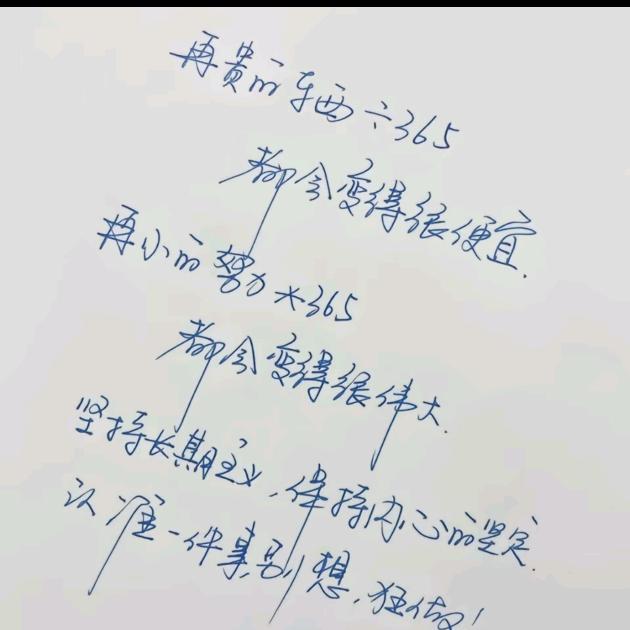 再贵的东西÷365
都会变得很便宜.
再小的努力×365
都会变得很伟大.
坚持长期主义,保持内心的坚定.
认准一件事别想,狂做!